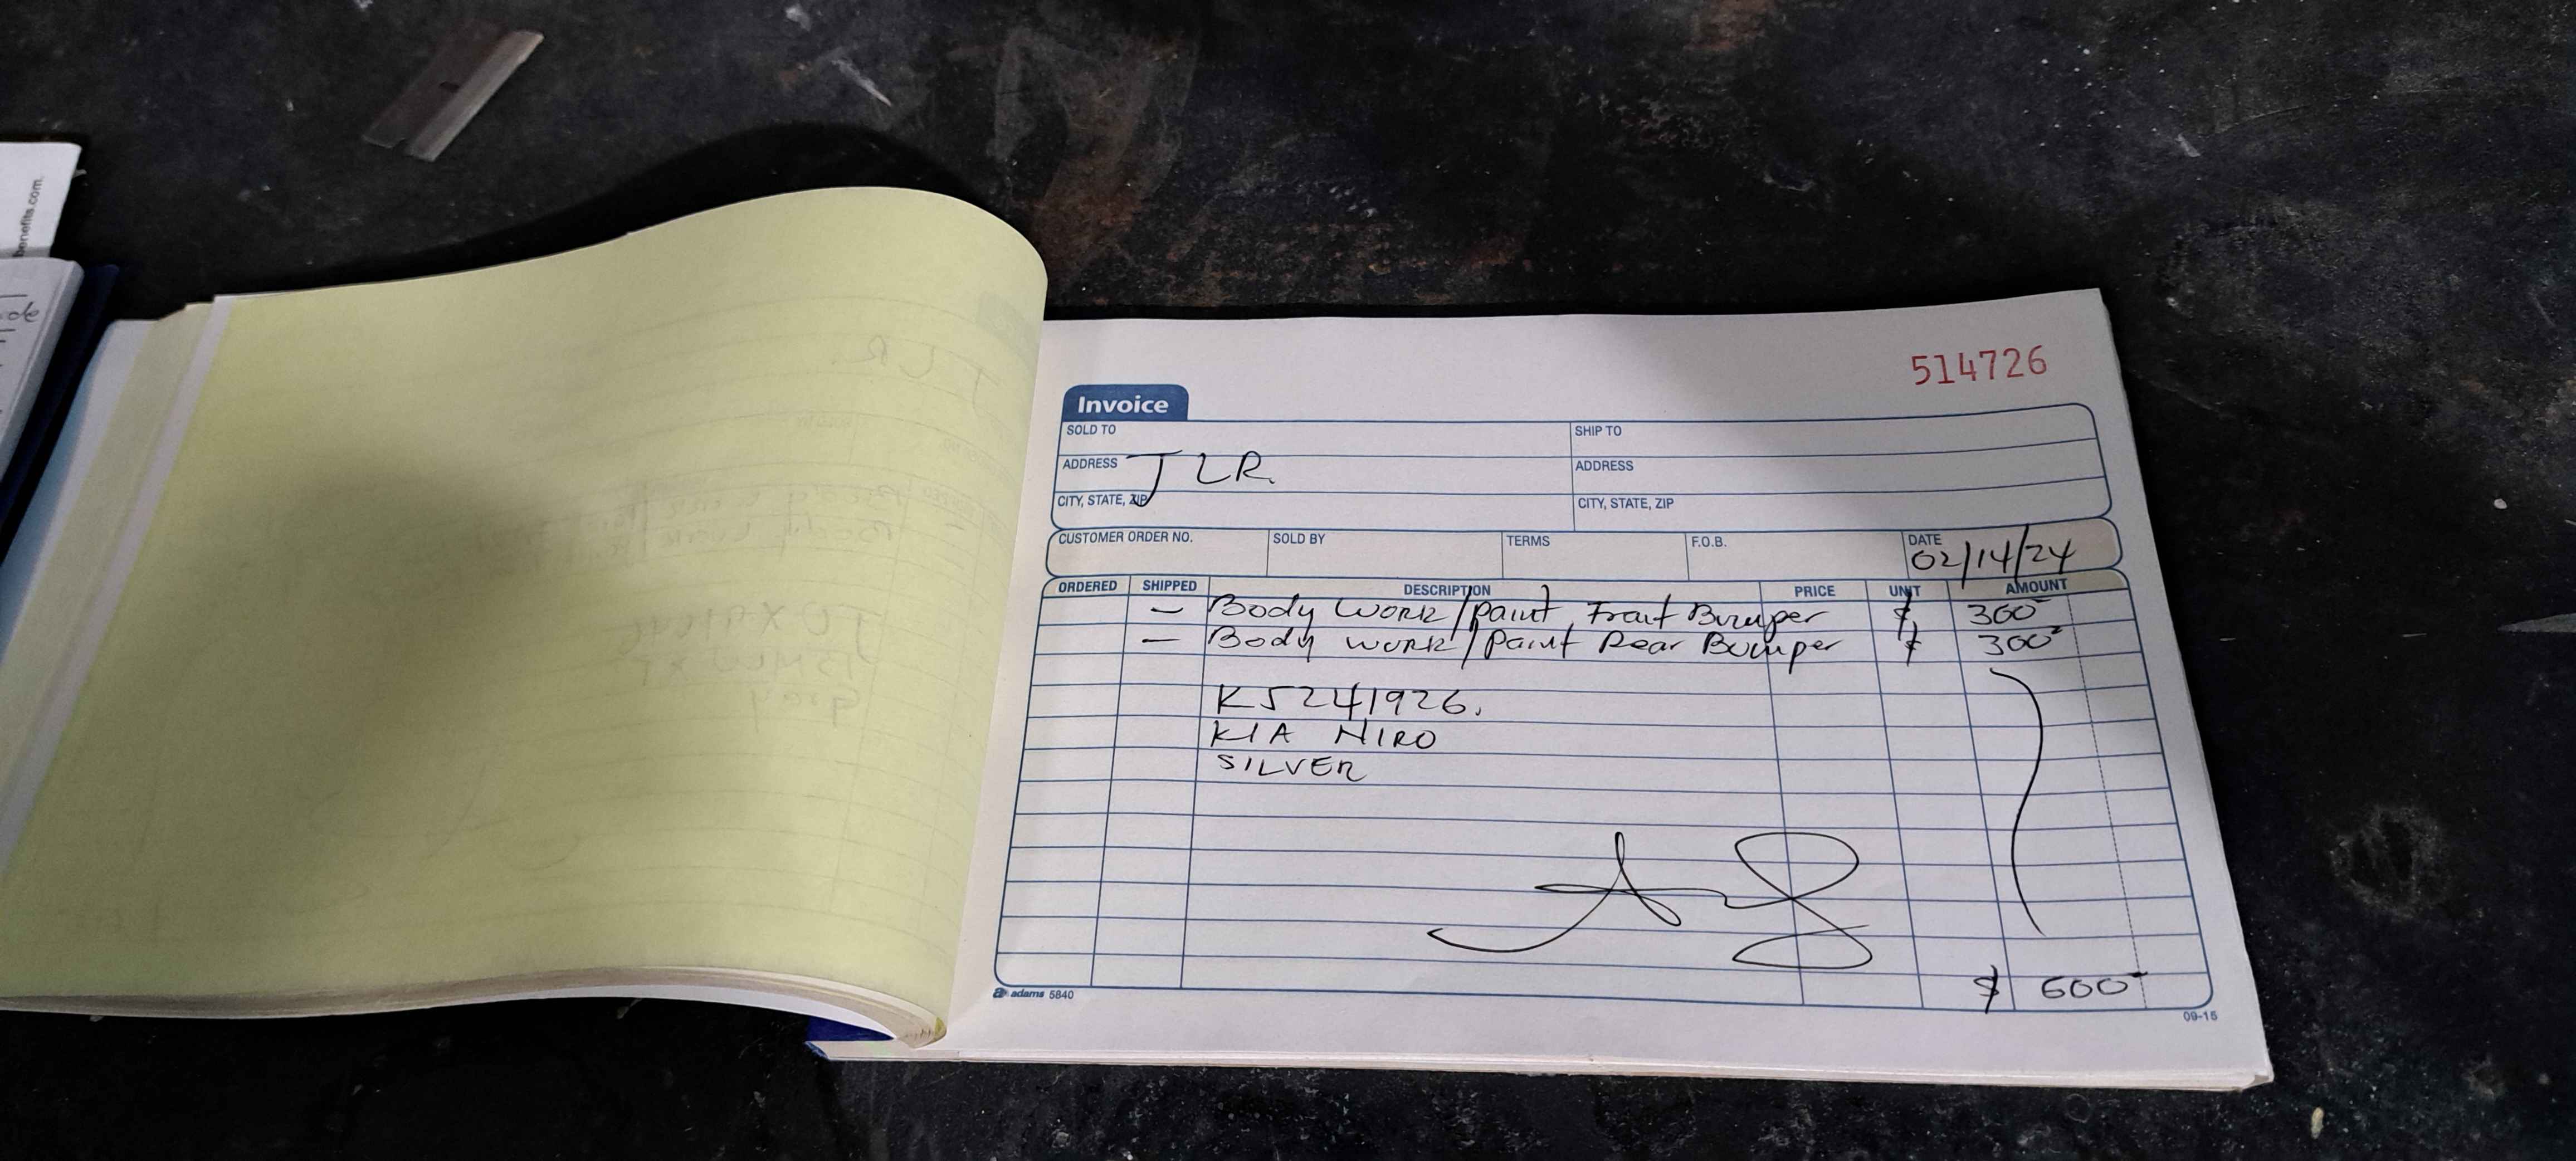 benefits.com.
514726
Invoice
SOLD TO
SHIP TO
ADDRESS JLR.
ADDRESS
CITY, STATE, ZIP
CITY, STATE, ZIP
CUSTOMER ORDER NO. SOLD BY TERMS F.O.B. DATE
02/14/24
ORDERED SHIPPED DESCRIPTION PRICE UNIT AMOUNT
— Body Work/paint Front Bumper $ 300
— Body work/Paint Rear Bumper $ 300
K5241926.
KIA NIRO
SILVER
$ 600
adams 5840
09-15